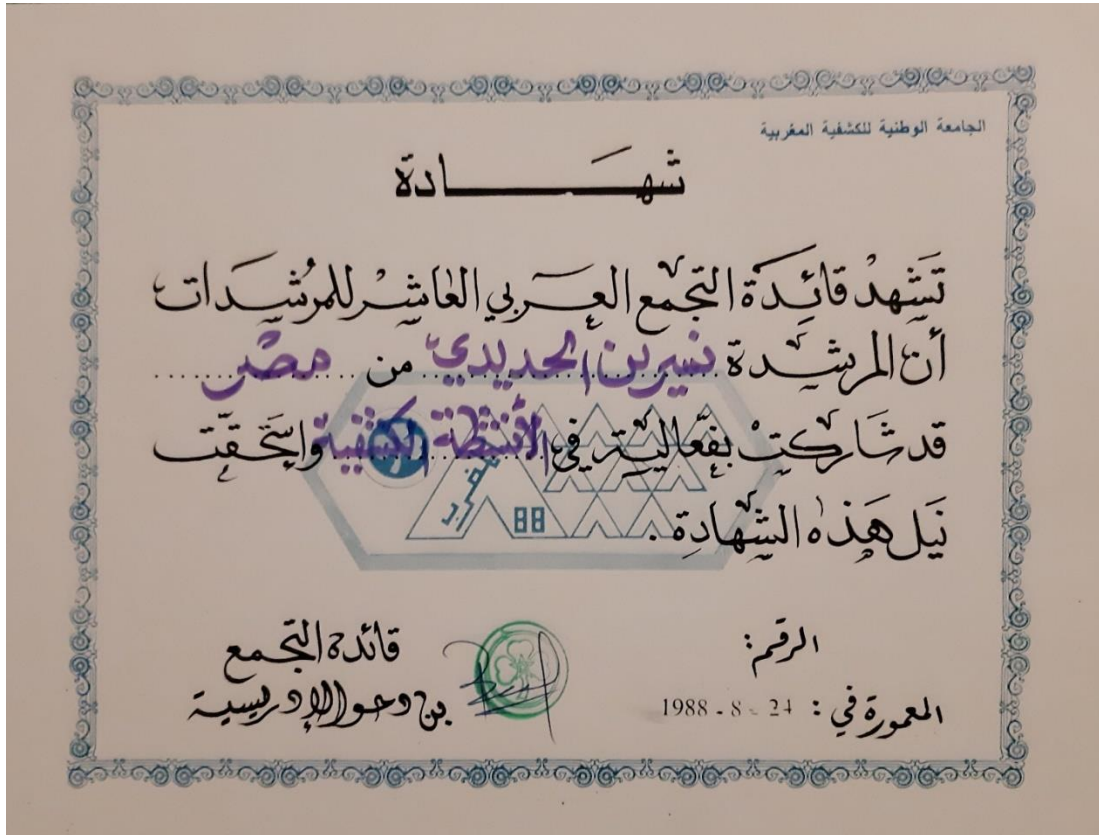 الجامعة الوطنية للكشفية المغربية
شهادة
تشهد قائدة التجمع العربي العاشر للمرشدات
أن المرشدة نسرين الحديدي من مصر
قد شاركت بفعالية في الأنشطة الكشفية واستحقت
نيل هذه الشهادة.
المغرب
88
الرقم:
المعمورة في: 24 - 8 - 1988
قائدة التجمع
بن دحو الإدريسية